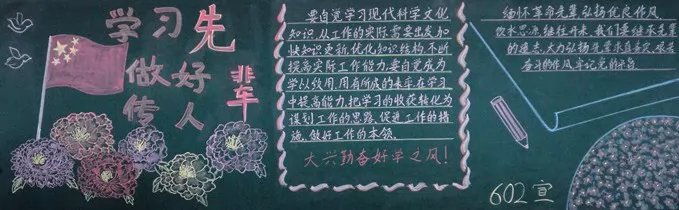 学习先辈
做好
传人
要自觉学习现代科学文化
知识,从工作的实际需要出发,加
快知识更新,优化知识结构,不断
提高实际工作能力,要自觉成为
学以致用,用有所成的表率,在学习
中提高能力,把学习的收获转化为
谋划工作的思路,促进工作的措
施,做好工作的本领。
大兴勤奋好学之风!
缅怀革命先辈弘扬优良作风
饮水思源,继往开来,我们要继承先辈
的遗志,大力弘扬先辈求真务实,艰苦
奋斗的作风,牢记党的宗旨
602宣